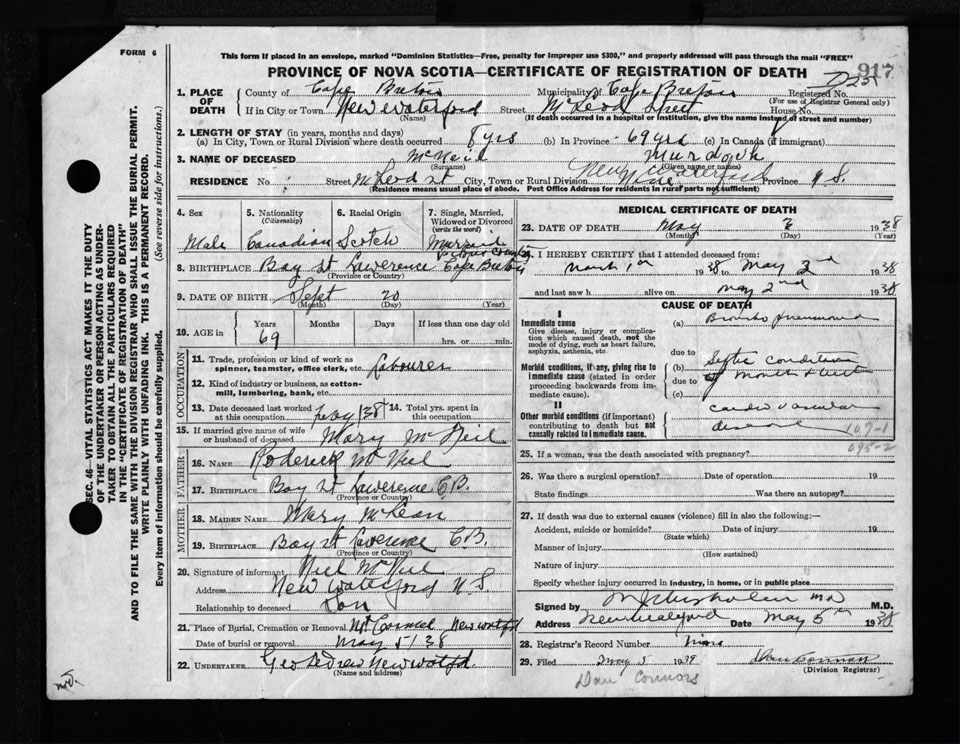 FORM 6
This form if placed in an envelope, marked "Dominion Statistics—Free, penalty for improper use $300," and properly addressed will pass through the mail "FREE"
917
PROVINCE OF NOVA SCOTIA—CERTIFICATE OF REGISTRATION OF DEATH
1. PLACE OF DEATH
County of Cape Breton Municipality of Cape Breton Registered No.
(For use of Registrar General only)
If in City or Town New Waterford Street McLeod Street House No.
(Name) (If death occurred in a hospital or institution, give the name instead of street and number)
2. LENGTH OF STAY (in years, months and days)
(a) In City, Town or Rural Division where death occurred 8 yrs (b) In Province 69 yrs (c) In Canada (if immigrant)
3. NAME OF DECEASED McNeil Murdock
(Surname) (Given name or names)
RESIDENCE No. Street McLeod st City, Town or Rural Division New Waterford Province N.S.
Residence means usual place of abode. Post Office Address for residents in rural parts not sufficient)
4. Sex
Male
5. Nationality
(Citizenship)
Canadian
6. Racial Origin
Scotch
7. Single, Married, Widowed or Divorced
(write the word)
Married
8. BIRTHPLACE Bay St Lawerence Cape Breton
(Province or Country)
9. DATE OF BIRTH Sept 20
(Month) (Day) (Year)
10. AGE in
Years Months Days If less than one day old
69 hrs. or min.
OCCUPATION
11. Trade, profession or kind of work as spinner, teamster, office clerk, etc. Labourer
12. Kind of industry or business, as cotton-mill, lumbering, bank, etc.
13. Date deceased last worked at this occupation 1/38
14. Total yrs. spent in this occupation
15. If married give name of wife or husband of deceased Mary McNeil
FATHER
16. NAME Roderick McNeil
17. BIRTHPLACE Bay St Lawerence C.B.
(Province or Country)
MOTHER
18. MAIDEN NAME Mary McLean
19. BIRTHPLACE Bay St Lawerence C.B.
(Province or Country)
20. Signature of informant Niel McNeil
Address New Waterford N.S.
Relationship to deceased Son
21. Place of Burial, Cremation or Removal Mt Carmel New Watfd
Date of burial or removal May 5/38
22. UNDERTAKER Geo New Watfd
(Name and address)
MEDICAL CERTIFICATE OF DEATH
23. DATE OF DEATH May 2 1938
(Month) (Day) (Year)
I HEREBY CERTIFY that I attended deceased from:
March 1st 1938 to May 2nd 1938
and last saw h alive on May 2nd 1938
CAUSE OF DEATH
I
Immediate cause
Give disease, injury or complication which caused death, not the mode of dying, such as heart failure, asphyxia, asthenia, etc
(a) Broncho pneumonia
due to
Morbid conditions, if any, giving rise to immediate cause (stated in order proceeding backwards from immediate cause).
(b) Septic condition
due to of mouth & teeth
(c)
II
Other morbid conditions (if important) contributing to death but not causally related to immediate cause.
Cardio vascular
disease
107-1
095-2
25. If a woman, was the death associated with pregnancy?
26. Was there a surgical operation? Date of operation 19
State findings Was there an autopsy?
27. If death was due to external causes (violence) fill in also the following:—
Accident, suicide or homicide? Date of injury 19
(State which)
Manner of injury
(How sustained)
Nature of injury
Specify whether injury occurred in industry, in home, or in public place
Signed by M J Chisholm MD M.D.
Address New Waterford Date May 5th 1938
28. Registrar's Record Number
29. Filed May 5 1939 Dan Connors
(Division Registrar)
Dan Connors
SEC. 46—VITAL STATISTICS ACT MAKES IT THE DUTY
OF THE UNDERTAKER OR PERSON ACTING AS UNDER-
TAKER TO OBTAIN ALL THE PARTICULARS REQUIRED
IN THE "CERTIFICATE OF REGISTRATION OF DEATH"
AND TO FILE THE SAME WITH THE DIVISION REGISTRAR WHO SHALL ISSUE THE BURIAL PERMIT.
WRITE PLAINLY WITH UNFADING INK. THIS IS A PERMANENT RECORD.
Every item of information should be carefully supplied. (See reverse side for instructions.)